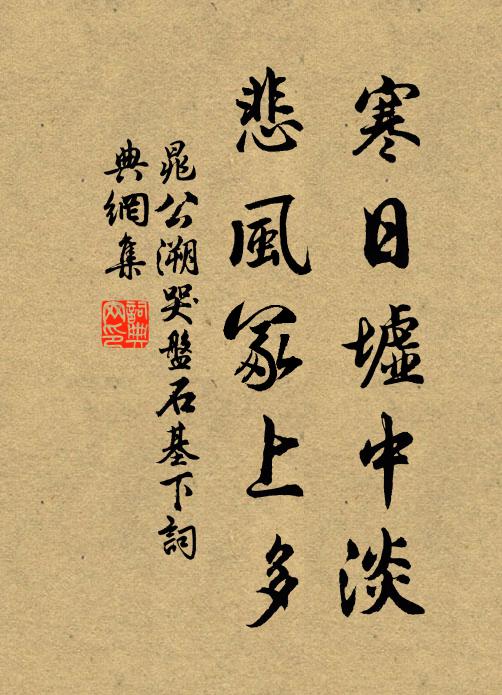 寒日墟中淡
悲風冢上多
晁公溯哭盤石基下詞
典網集
詞典
网印